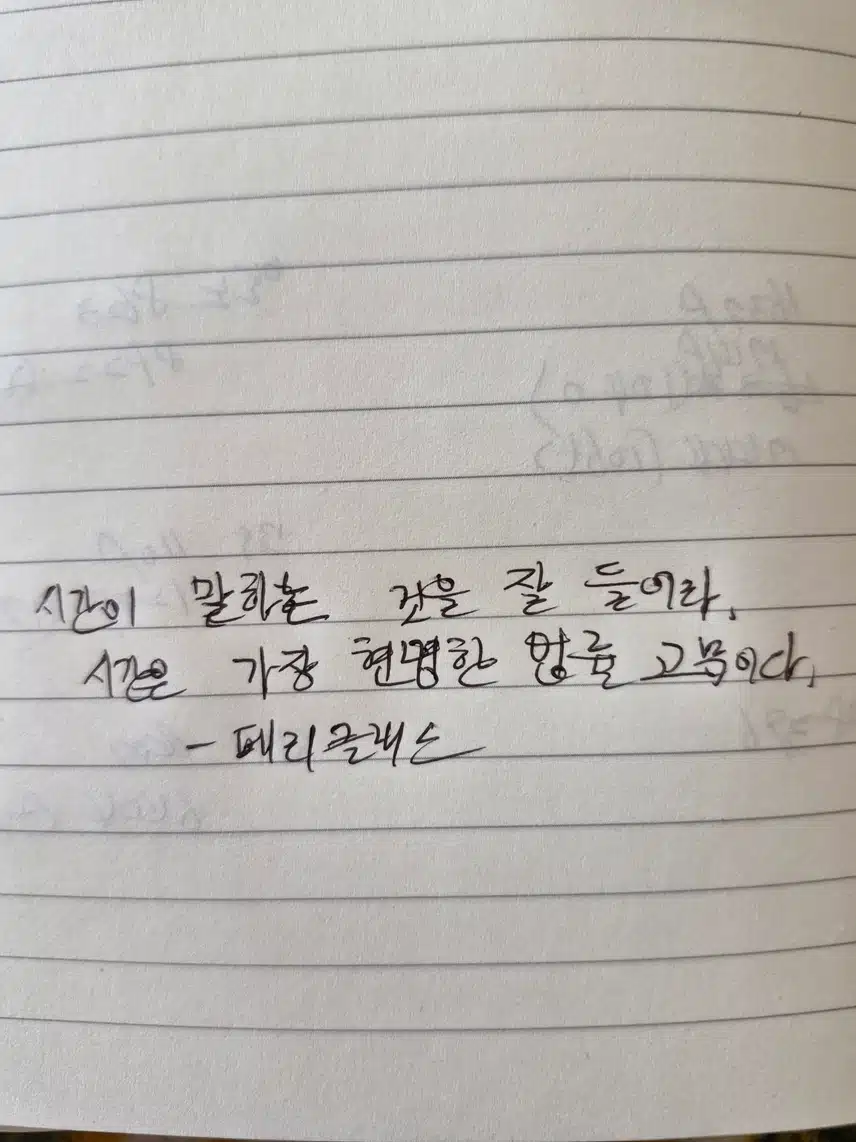 시간이 말하는 것을 잘 들어라.
시간은 가장 현명한 법률 고문이다.
- 페리클레스